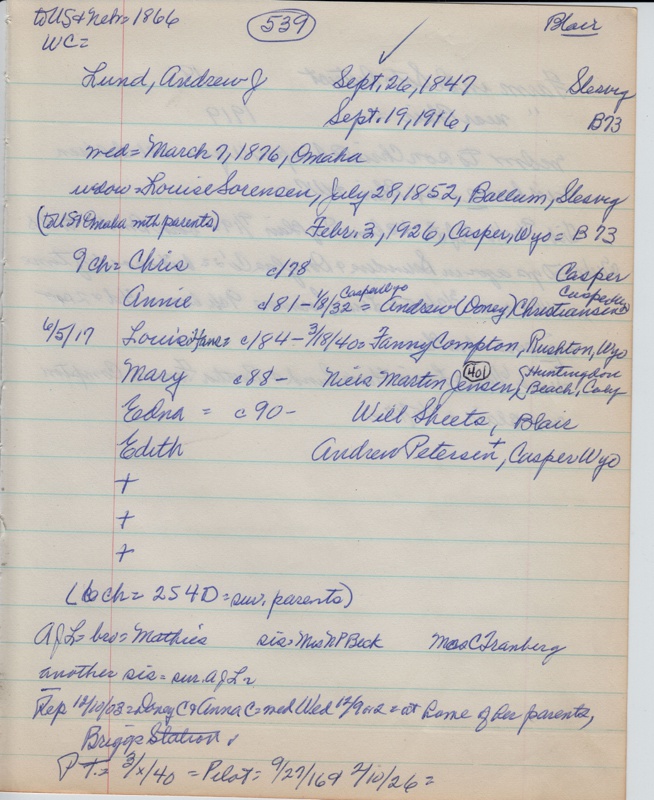 to US & Nebr = 1866 539 Blair
WC =
Lund, Andrew J Sept. 26, 1847 Slesvig
Sept. 19, 1916, B73
med = March 7, 1876, Omaha
widow = Louise Sorensen, July 28, 1852, Ballum, Slesvig
(to US & Omaha with parents) Febr. 3, 1926, Casper, Wyo = B73
9 ch = Chris c/78 Casper
Annie c/81 - 1/8/32 Casper Wyo = Andrew (Doney) Christiansen Casper
6/5/17 Louis Hans = c/84 - 3/18/40 = Fanny Compton, Rushton, Wyo
Mary c88 - Niels Martin Jensen, 401 {Huntingdon Beach, Caly
Edna = c90 - Will Sheets, Blair
Edith Andrew Petersen +, Casper Wyo
+
+
+
(6 ch = 2S 4D = surv. parents)
AJL = bro = Mathies sis = Mrs NP Beck Mrs C Tranberg
another sis = sur. AJL =
Rep 12/10/03 = Doney C & Anna C = med Wed 12/9 = at home of her parents,
Briggs Station
PT. = 3/x/40 = Pilot = 9/27/16 & 2/10/26 =